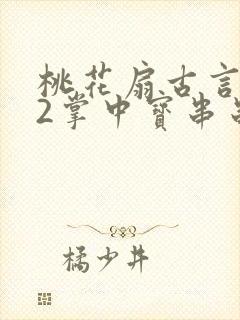 桃花扇古言
2掌中寳串
橘少井